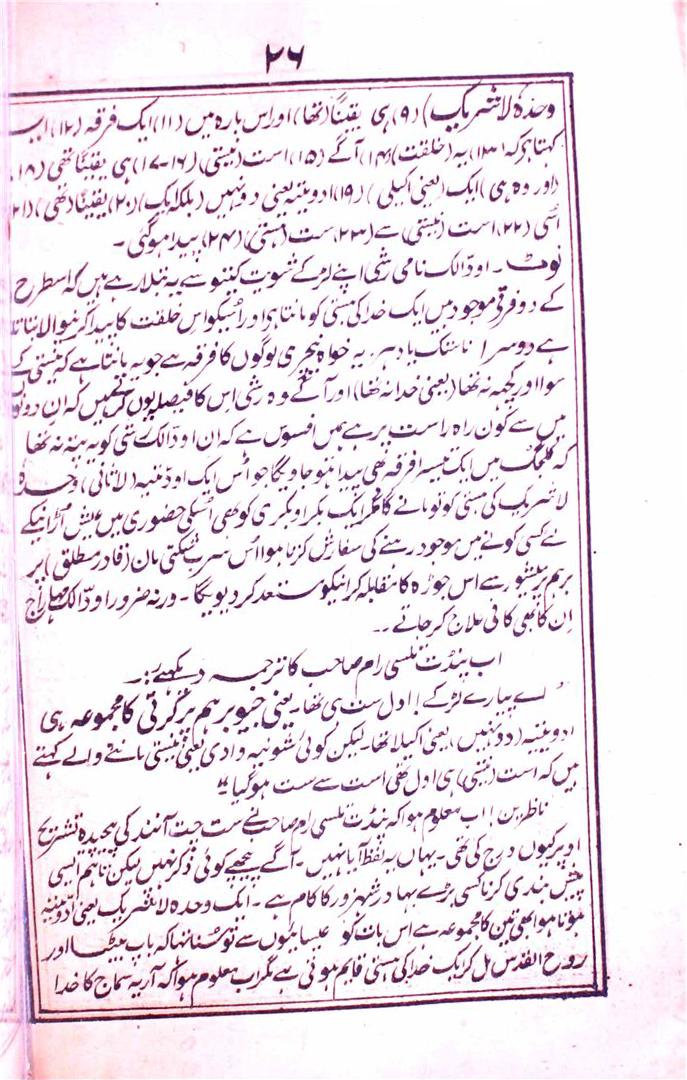 ۲۶
وحدہٗ لاشریک) (۹) ہی یقیناً (تھا) اور اس بارہ میں (۱۱) ایک فرقہ (۱۲)
کہتا ہو کہ (۱۳) یہ (خلقت) (۱۴) آگے (۱۵) است (نیستی) (۱۶-۱۷) ہی یقیناً تھی (۱۸)
(اور وہ ہی) ایک (یعنی اکیلی) (۱۹) ادوتیہ یعنی دو نہیں (بلکہ ایک) (۲۰) یقیناً (تھی) (۲۱)
اسی (۲۲) است (نیستی) سے (۲۳) ست (ہستی) (۲۴) پیدا ہو گئی۔
نوٹ۔ اودّالک نامی رشی اپنے لڑکے شویت کیتو سے یہ بتلا رہے ہیں کہ اسطرح
کے دو فرقے موجود ہیں ایک خدا کی ہستی کو مانتا ہے اور اُسیکو اس خلقت کا پیدا کرنیوالا بتاتا
ہے دوسرا ناستک یا دہریہ خواہ نیچری لوگوں کا فرقہ ہے جو یہ مانتا ہے کہ نیستی کے
سوا اور کچھ نہ تھا (یعنی خدا نہ تھا) اور آگے وہ رشی اس کا فیصلہ یوں کرتے ہیں کہ ان دونوں
میں سے کون راہ راست پر ہے ہمیں افسوس ہے کہ ان اودّالک رشی کو یہ پتہ نہ تھا
کہ کلجگ میں ایک تیسرا فرقہ بھی پیدا ہو جاویگا جو اُس ایک اودتیہ (لاثانی) وحدہٗ
لاشریک کی ہستی کو تو مانے گا مگر ایک بکرا و بکری کو بھی اُسکی حضوری میں عیش اُڑانیکے
لئے کسی کونے میں موجود رہنے کی سفارش کرتا ہوا اُس سرب شکتی مان (قادر مطلق) پر
برہم پرمیشور سے اس جوڑہ کا مقابلہ کرانیکو مستعد کر دیویگا۔ ورنہ ضرور اودّالک مہاراج
اِن کا بھی کافی علاج کر جاتے۔۔
اب پنڈت تلسی رام صاحب کا ترجمہ دیکھئے:۔
"اے پیارے لڑکے! اول ست ہی تھا۔ یعنی جیو برہم پرکرتی کا مجموعہ ہی
ادوتیہ (دو نہیں) یعنی اکیلا تھا۔ لیکن کوئی شونیہ وادی یعنی نیستی ماننے والے کہتے
ہیں کہ است (نیستی) ہی اول تھی است سے ست ہو گیا"
ناظرین! اب معلوم ہوا کہ پنڈت تلسی رام صاحب نے ست چت آنند کی پیچیدہ تشریح
اوپر کیوں درج کی تھی۔ یہاں یہ لفظ آیا نہیں۔ آگے پیچھے کوئی ذکر نہیں لیکن تاہم ایسی
پیش بندی کرنا کسی بڑے بہادر شہزور کا کام ہے۔ ایک وحدہ لاشریک یعنی ادوتیہ
ہوتا ہوا بھی تین کا مجموعہ ہے اس بات کو عیسائیوں سے تو سُنا تہا کہ باپ بیٹا اور
روح القدس مل کر ایک خدا کی ہستی قایم ہوتی ہے مگر اب معلوم ہوا کہ آریہ سماج کا خدا